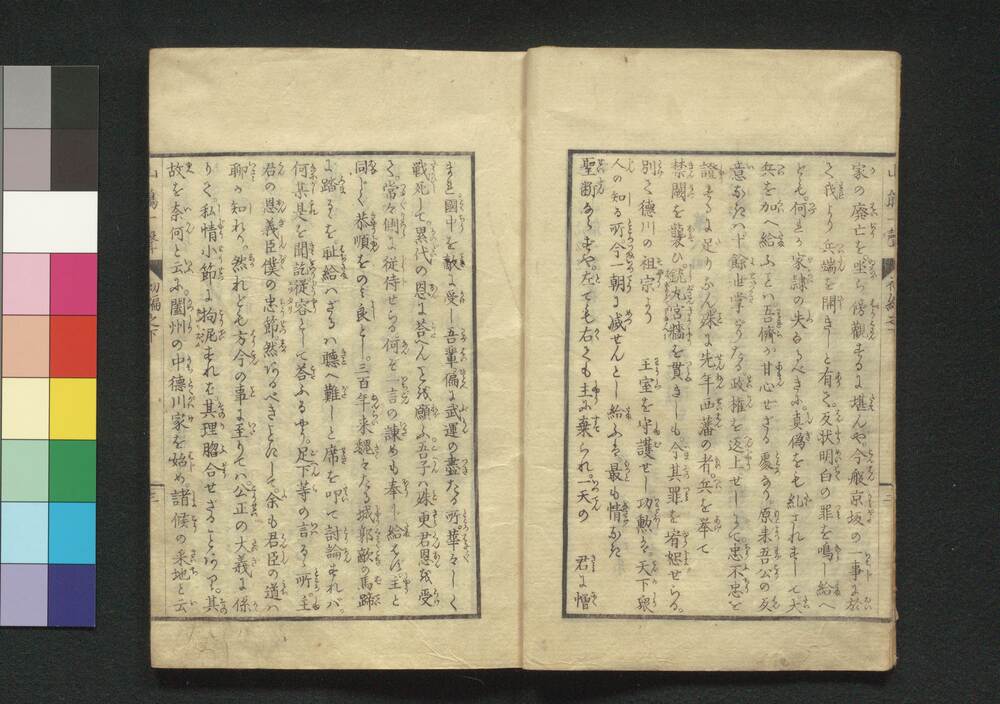 家の廃亡を坐ら傍観するに堪んや今般京坂の一事に於
く我より兵端を開きしと有て反状明白の罪を鳴し給へ
ども何ぞ家隷の失なるべき真偽をも糺されずして大
兵を加へ給ふとハ吾儕が甘心せざる処なり原来吾公の反
意なきハ十餘世掌りたる政権を返上せしにて忠不忠を
證するに足りなん殊に先年西藩の者兵を挙て
禁闕を襲ひ銃丸宮牆を貫きしも今其罪を宥恕せらる
別て徳川の祖宗より 王室を守護せし功勲ハ天下衆
人の知る所今一朝に滅せんとし給ふハ最も情なき
聖断ならずや左ても右ても主に棄られ一天の 君に憎
まれ國中を敵に受し吾輩偏に武運の盡たる所華々しく
戦死して累代の恩に荅へんことを願ふ吾子ハ殊更君恩を受
て常々側に従侍せらる何ぞ一言の諫めも奉し給はず主と
同じく恭順をのミ良とし三百年来魏々たる城郭敵の馬蹄
に踏るを耻給ハざるハ聴へ難しと席を叩て討論すれバ
何某是を聞訖従容として答ふるやう足下等の言る所主
君の恩義臣僕の忠節然あるべきことにして余も君臣の道ハ
聊か知れり然れども方今の事に至りてハ公正の大義に係
りて私情小節に拘泥すれバ其理脗合せざることあり其
故を奈何と云に闔州の中徳川家を始め諸候の采地と云